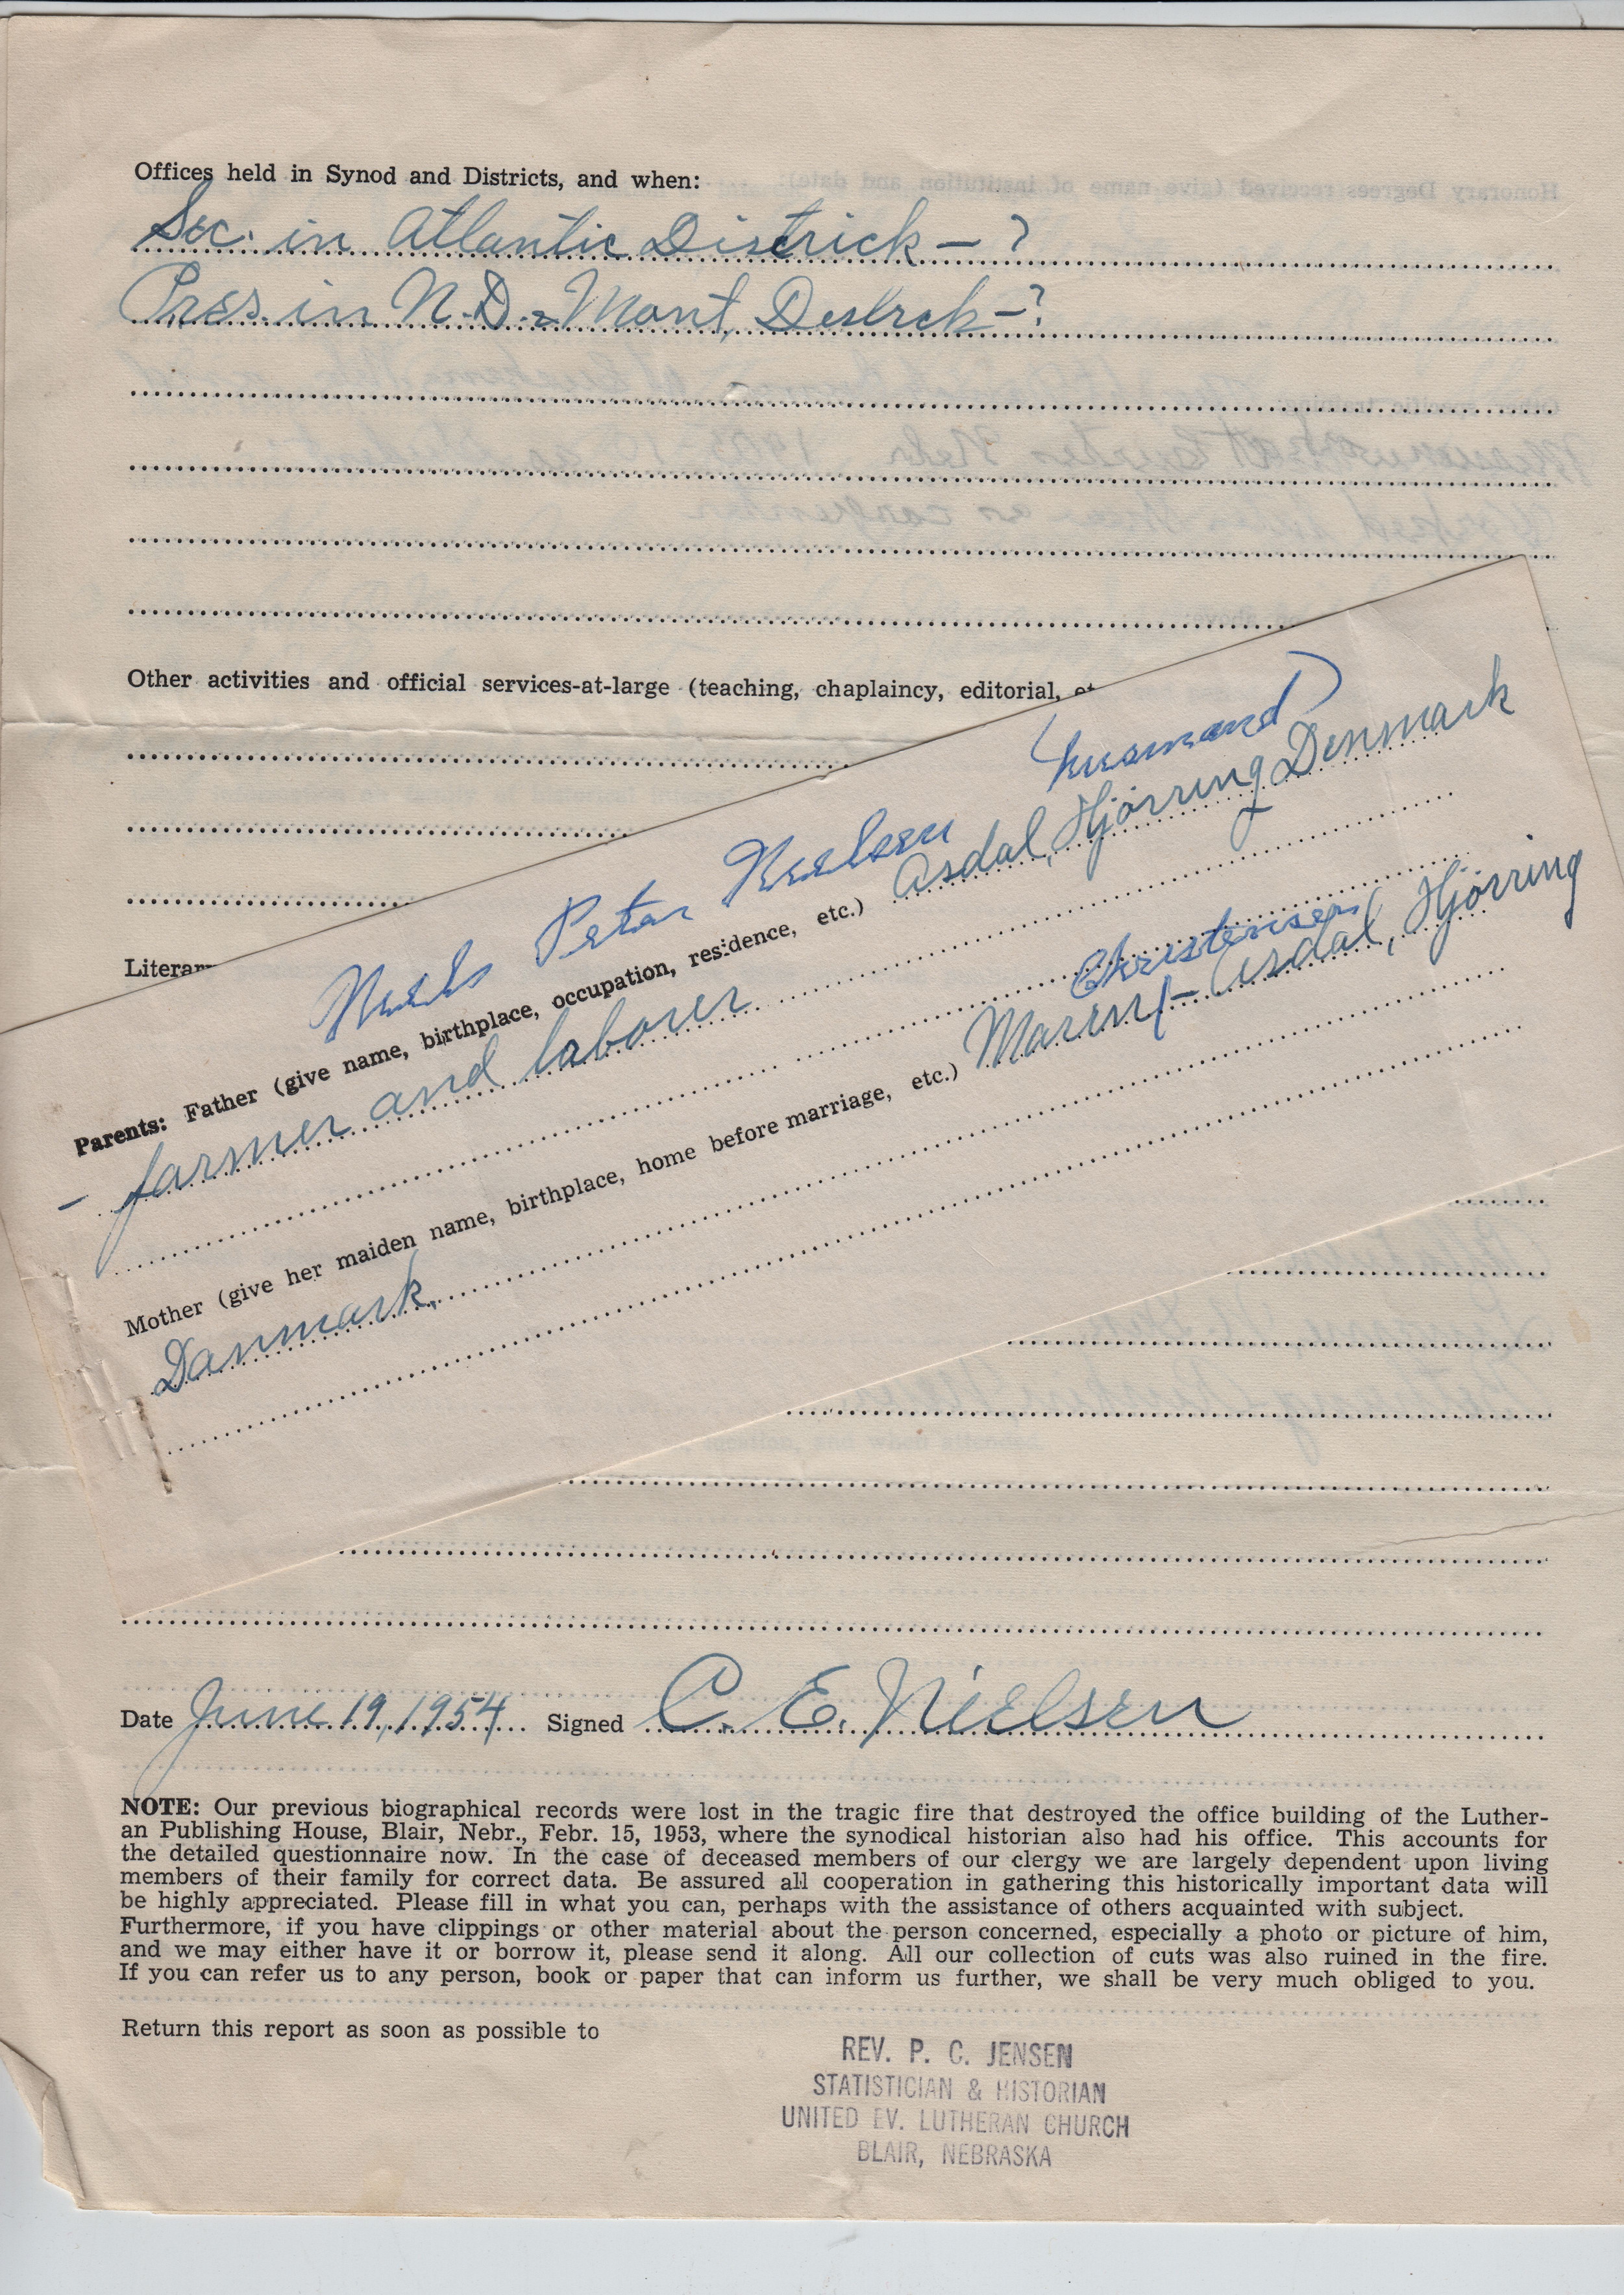 Offices held in Synod and Districts, and when:
Sec. in Atlantic Districk – ?
Pres. in N.D. – Mont, Destrck – ?
Other activities and official services-at-large (teaching, chaplaincy, editorial, et
Literar
Niels Peter Nielsen
Parents: Father (give name, birthplace, occupation, residence, etc.) Asdal, Hjörring Denmark
– farmer and labourer
Christensen
Mother (give her maiden name, birthplace, home before marriage, etc.) Maren – Asdal, Hjörring
Danmark.
Date June 19, 1954 Signed C. E. Nielsen
NOTE: Our previous biographical records were lost in the tragic fire that destroyed the office building of the Luther-
an Publishing House, Blair, Nebr., Febr. 15, 1953, where the synodical historian also had his office. This accounts for
the detailed questionnaire now. In the case of deceased members of our clergy we are largely dependent upon living
members of their family for correct data. Be assured all cooperation in gathering this historically important data will
be highly appreciated. Please fill in what you can, perhaps with the assistance of others acquainted with subject.
Furthermore, if you have clippings or other material about the person concerned, especially a photo or picture of him,
and we may either have it or borrow it, please send it along. All our collection of cuts was also ruined in the fire.
If you can refer us to any person, book or paper that can inform us further, we shall be very much obliged to you.
Return this report as soon as possible to
REV. P. C. JENSEN
STATISTICIAN & HISTORIAN
UNITED EV. LUTHERAN CHURCH
BLAIR, NEBRASKA